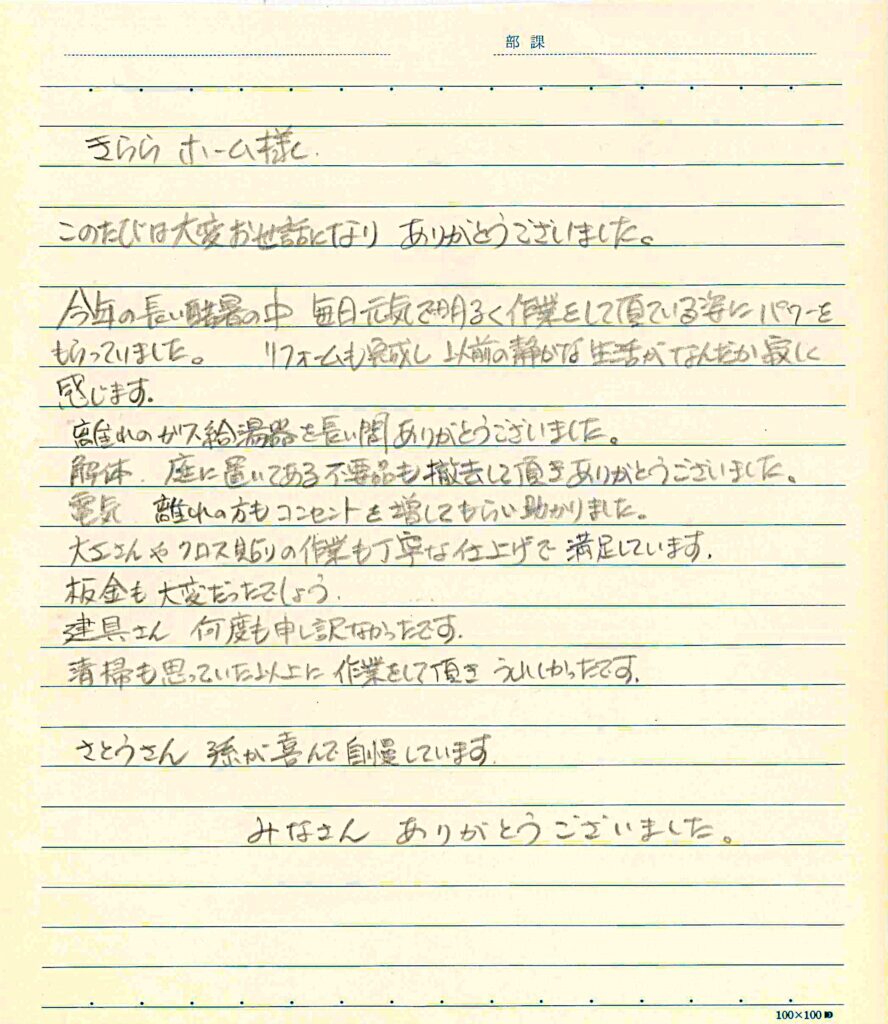 部 課
きらら ホーム様へ.
このたびは大変お世話になり ありがとうございました。
今年の長い酷暑の中 毎日元気で明るく作業をして頂ている姿に パワーを
もらっていました。 リフォームも完成し 以前の静かな生活がなんだか寂しく
感じます.
離れのガス給湯器を長い間ありがとうございました。
解体. 庭に置いてある不要品も撤去して頂きありがとうございました。
電気 離れの方もコンセントを増してもらい助かりました。
大工さんや クロス貼りの作業も丁寧な仕上げで 満足しています.
板金も 大変だったでしょう.
建具さん 何度も申し訳なかったです.
清掃も思っていた以上に 作業をして頂き うれしかったです.
さとうさん 孫が喜んで自慢しています.
みなさん ありがとうございました。
100×100